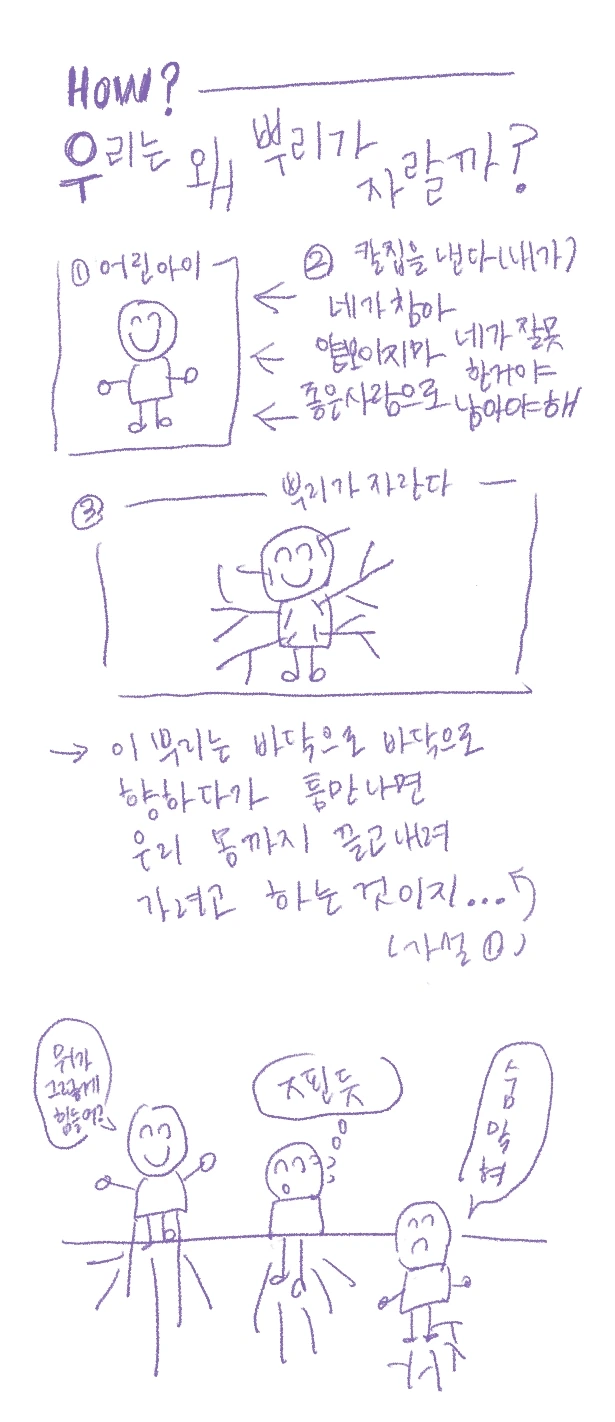 HOW?
우리는 왜 뿌리가
자랄까?
① 어린아이
② 칼집을 낸다(내가)
네가 참아
얕보이지마 네가 잘못
한거야
좋은사람으로 남아야해
③ 뿌리가 자란다
→ 이 뿌리는 바닥으로 바닥으로
향하다가 틈만나면
우리 몸까지 끌고내려
가려고 하는 것이지...
(가설 ①)
뭐가
그렇게
힘들어?
ㅈ된듯
숨
막
혀